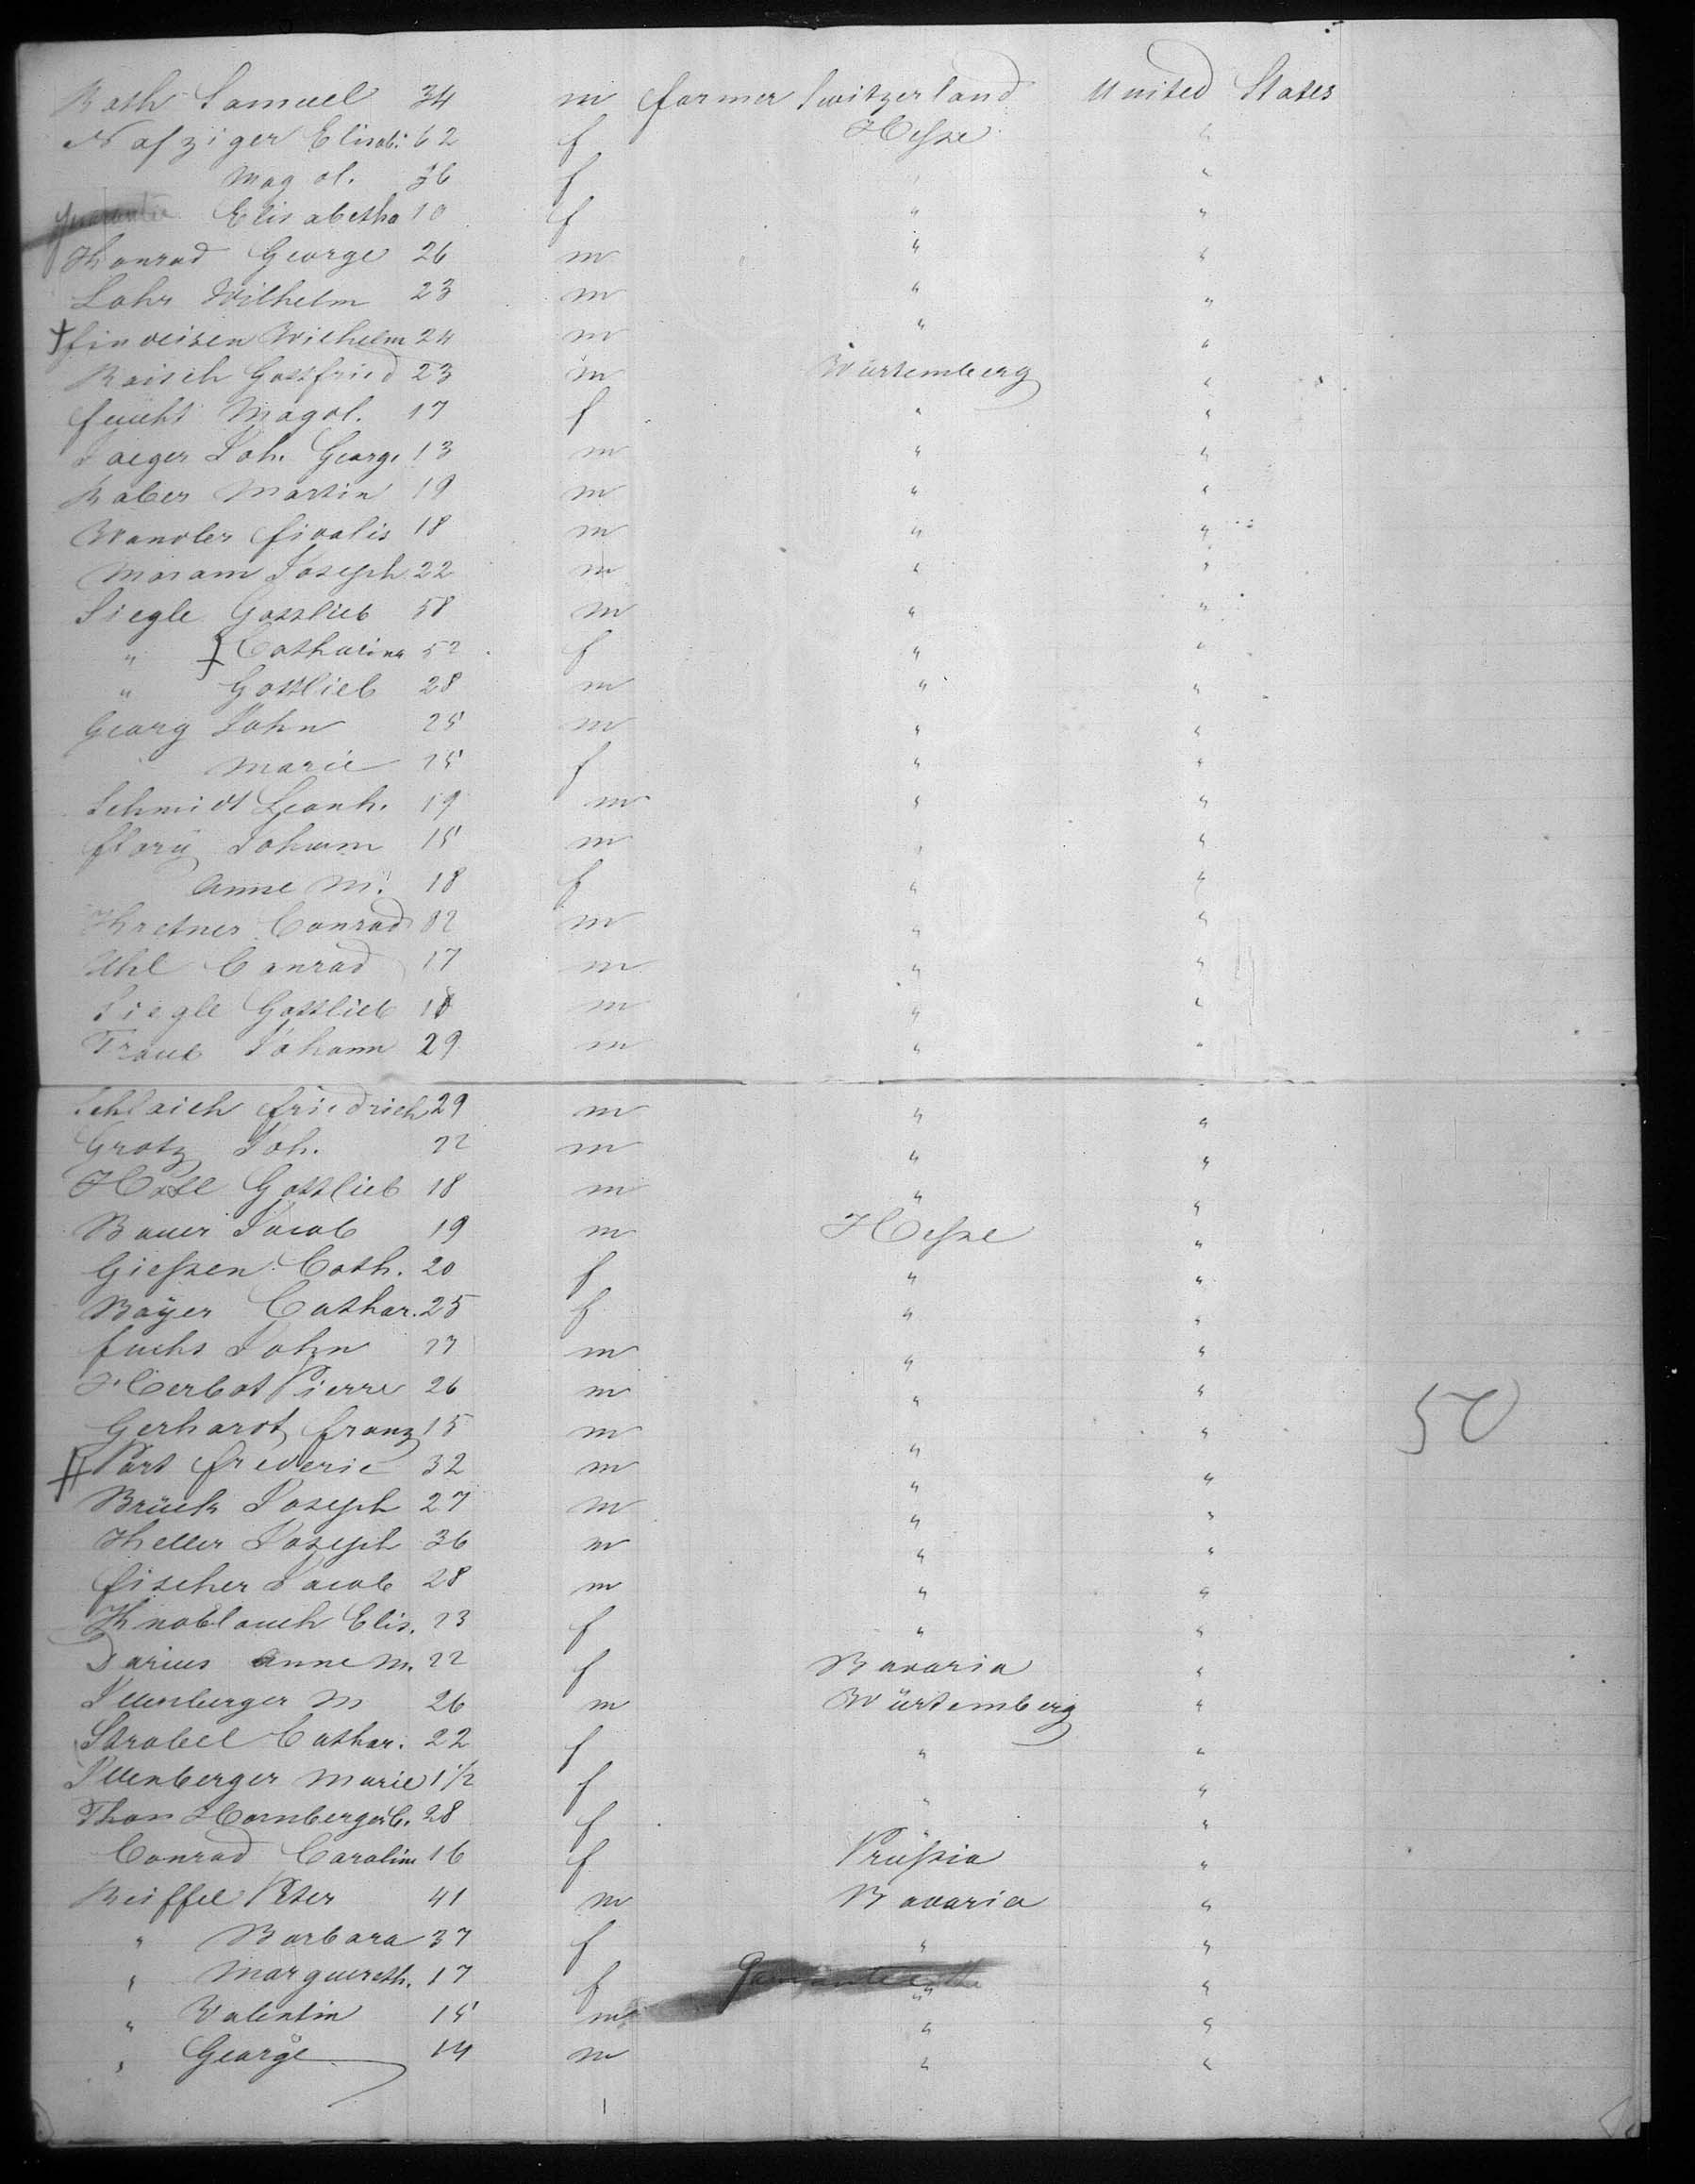 Roth Samuel 34 m farmer Switzerland United States
Nafziger Elisab: 62 f Heſse "
Magd. 36 f " "
Elisabetha 10 f " "
Konrad George 26 m " "
Lahr Wilhelm 23 m " "
Findeisen Wilhelm 24 m " "
Raisch Gottfried 23 m Würtemberg "
Feucht Magd. 17 f " "
Jaeger Joh. George 13 m " "
Raber Martin 19 m " "
Wandler Fidalis 18 m " "
Maram Joseph 22 m " "
Siegle Gottlieb 58 m " "
" Catharina 52 f " "
" Gottlieb 28 m " "
Georg John 25 m " "
Marie 25 f " "
Schmidt Leonh. 19 m " "
Flory Johann 15 m " "
Anne M. 18 f " "
Conrad m " "
Uhl Conrad 17 m " "
Siegle Gottlieb 18 m " "
Traub Johann 29 m " "
Schlaich Friedrich 29 m " "
Grotz Joh. 22 m " "
Gottlieb 18 m " "
Bauer Jacob 19 m Heſse "
Gieſsen Cath. 20 f " "
Bayer Cathar. 25 f " "
Fuchs John 27 m " "
Herbot Pierre 26 m " "
Gerhardt Franz 15 m " " 50
Port Frederic 32 m " "
Brück Joseph 27 m " "
Keller Joseph 36 m " "
Fischer Jacob 28 m " "
Knoblauch Elis. 23 f " "
Darius Anne M. 22 f Bavaria "
Illenberger M 26 m Würtemberg "
Strobel Cathar. 22 f " "
Illenberger Marie 1 1/2 f " "
Thor Hornberger C. 28 f " "
Conrad Carolin 16 f Pruſsia "
Reiffel Peter 41 m Bavaria "
" Barbara 37 f " "
" Margureth. 17 f " "
" Valentin 15 m " "
" George 14 m " "